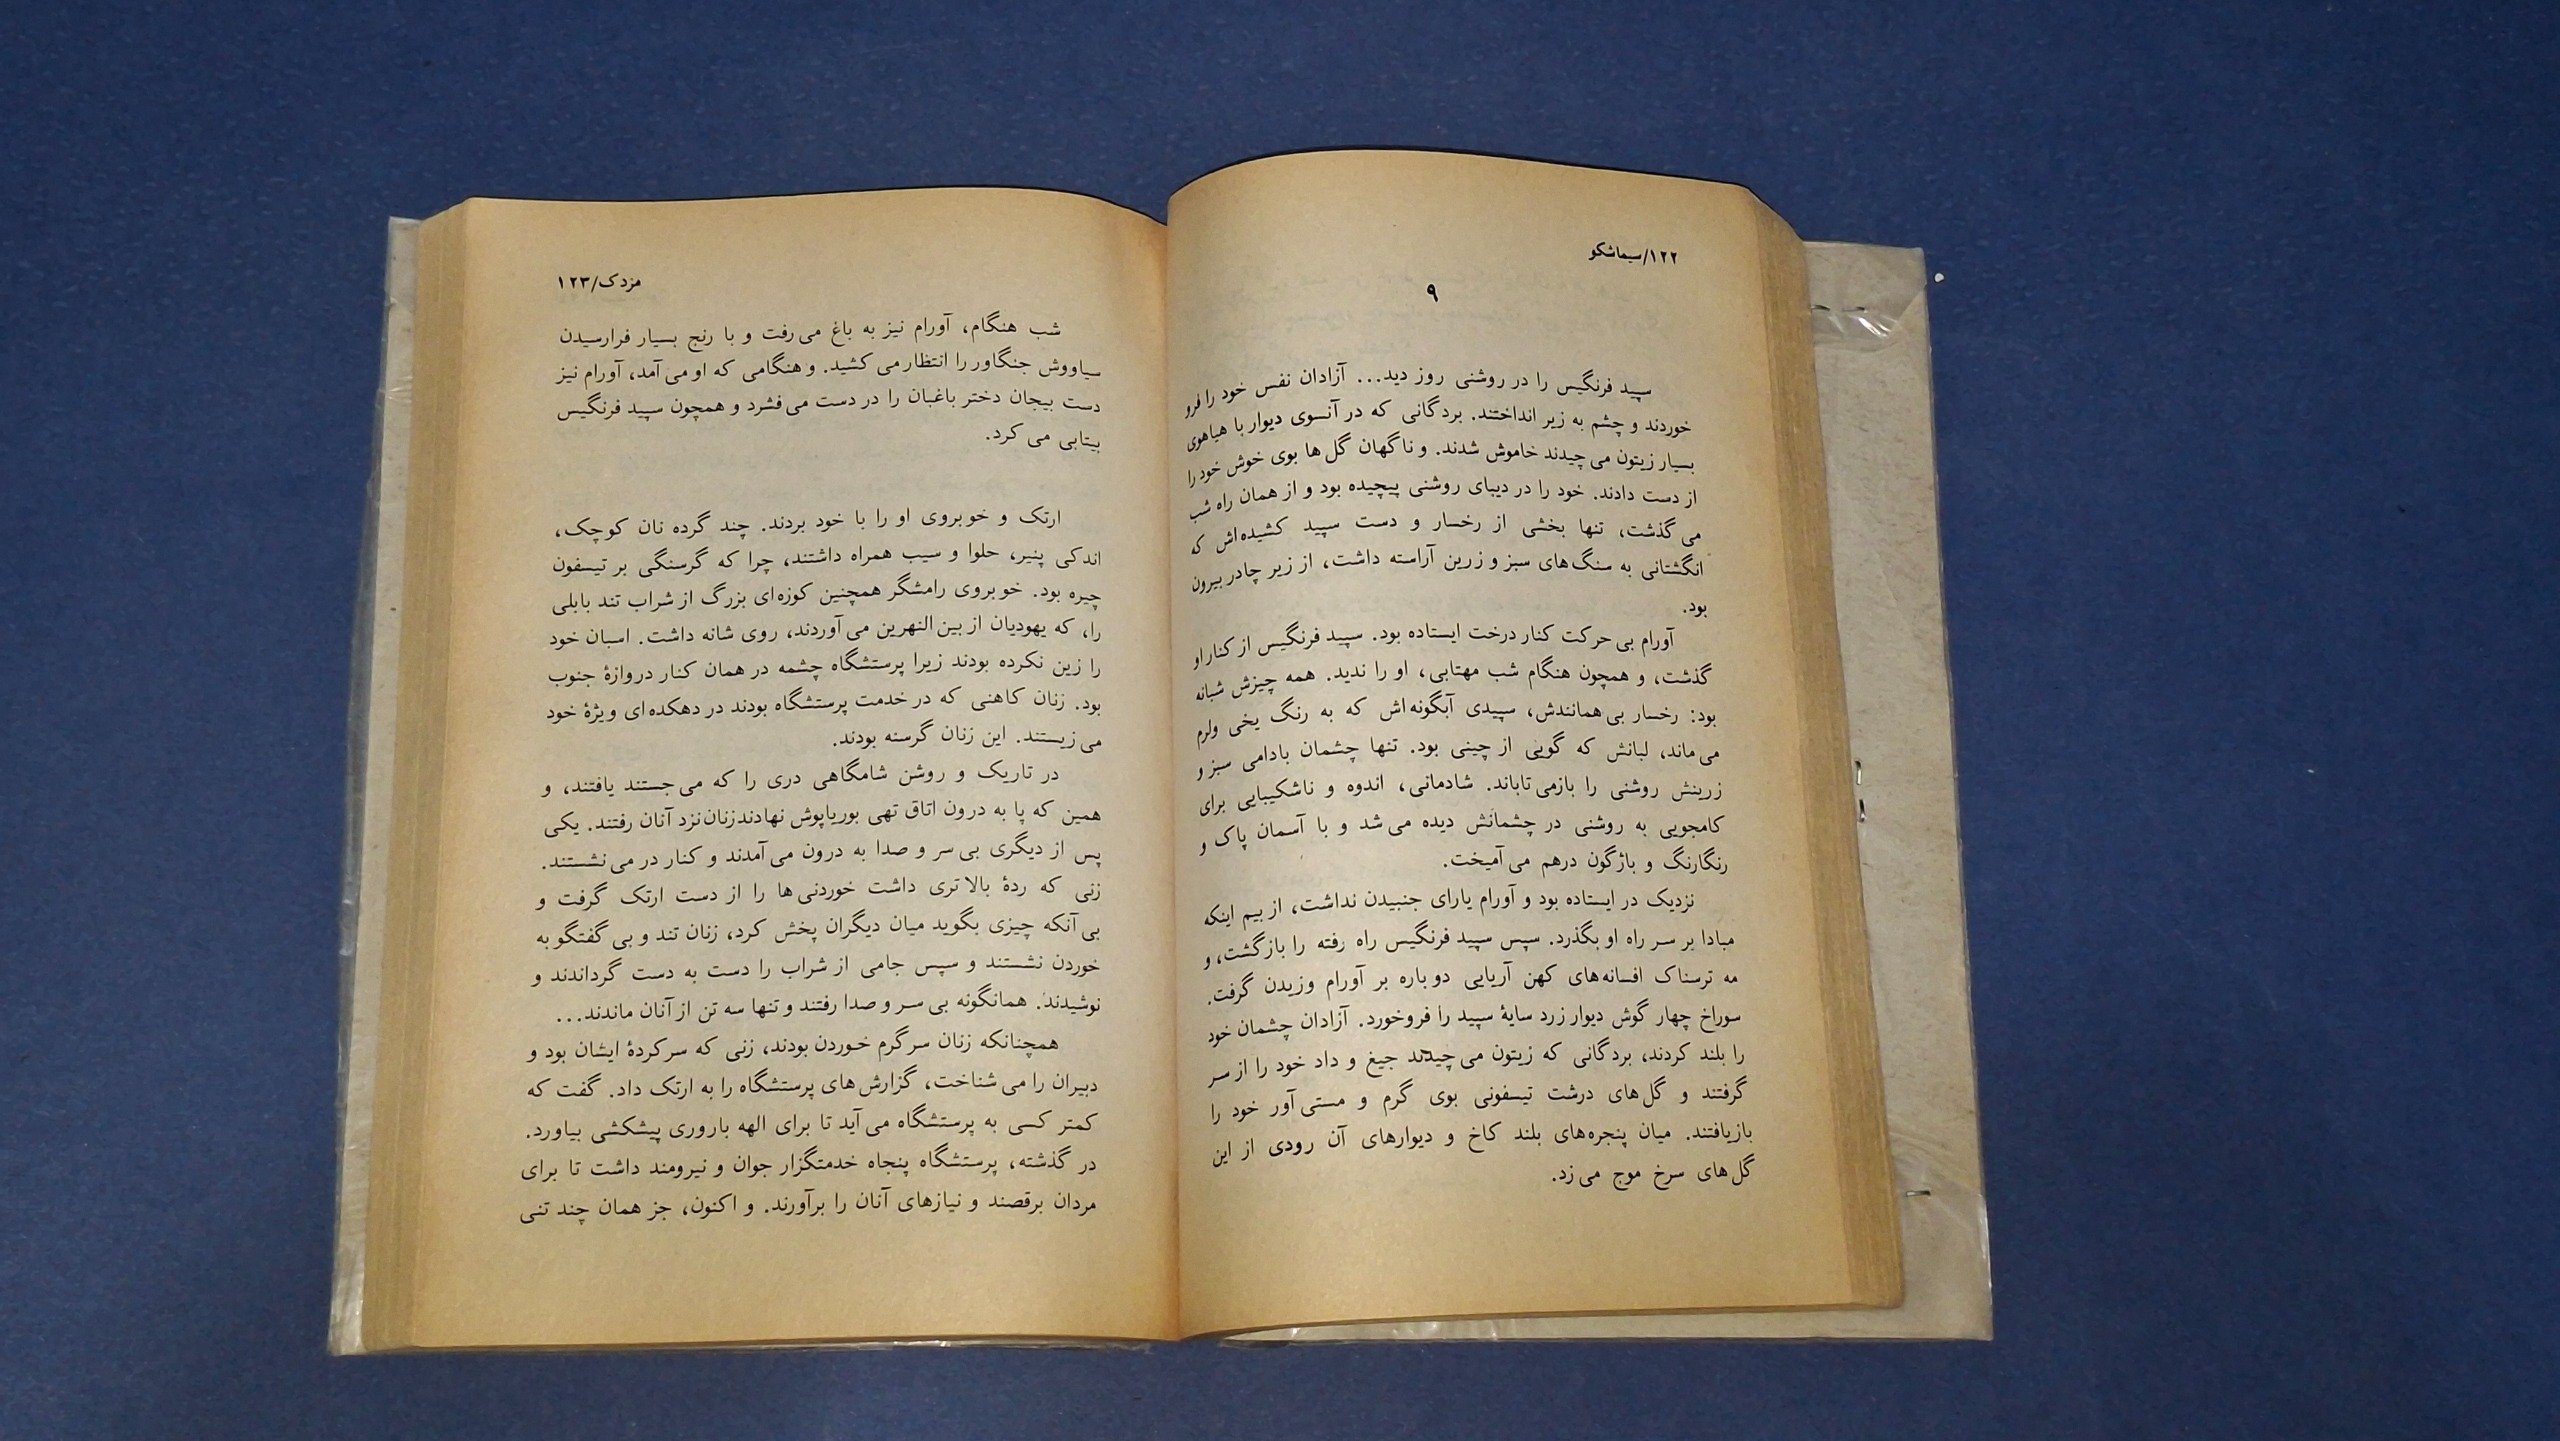 ۱۲۲/سیماشکو
۹
سپید فرنگیس را در روشنی روز دید... آزادان نفس خود را فرو
خوردند و چشم به زیر انداختند. بردگانی که در آنسوی دیوار با هیاهوی
بسیار زیتون می‌چیدند خاموش شدند. و ناگهان گل‌ها بوی خوش خود را
از دست دادند. خود را در دیبای روشنی پیچیده بود و از همان راه شب
می‌گذشت، تنها بخشی از رخسار و دست سپید کشیده‌اش که
انگشتانی به سنگ‌های سبز و زرین آراسته داشت، از زیر چادر بیرون
بود.
آورام بی‌حرکت کنار درخت ایستاده بود. سپید فرنگیس از کنار او
گذشت، و همچون هنگام شب مهتابی، او را ندید. همه چیزش شبانه
بود: رخسار بی‌همانندش، سپیدی آبگونه‌اش که به رنگ یخی ولرم
می‌ماند، لبانش که گویی از چینی بود. تنها چشمان بادامی سبز و
زرینش روشنی را بازمی‌تاباند. شادمانی، اندوه و ناشکیبایی برای
کامجویی به روشنی در چشمانش دیده می‌شد و با آسمان پاک و
رنگارنگ و باژگون درهم می‌آمیخت.
نزدیک در ایستاده بود و آورام یارای جنبیدن نداشت، از بیم اینکه
مبادا بر سر راه او بگذرد. سپس سپید فرنگیس راه رفته را بازگشت، و
مه ترسناک افسانه‌های کهن آریایی دوباره بر آورام وزیدن گرفت.
سوراخ چهار گوش دیوار زرد سایهٔ سپید را فروخورد. آزادان چشمان خود
را بلند کردند، بردگانی که زیتون می‌چیدند جیغ و داد خود را از سر
گرفتند و گل‌های درشت تیسفونی بوی گرم و مستی‌آور خود را
بازیافتند. میان پنجره‌های بلند کاخ و دیوارهای آن رودی از این
گل‌های سرخ موج می‌زد.
مزدک/۱۲۳
شب هنگام، آورام نیز به باغ می‌رفت و با رنج بسیار فرارسیدن
سیاووش جنگاور را انتظار می‌کشید. و هنگامی که او می‌آمد، آورام نیز
دست بیجان دختر باغبان را در دست می‌فشرد و همچون سپید فرنگیس
بیتابی می‌کرد.
ارتک و خوبروی او را با خود بردند. چند گرده نان کوچک،
اندکی پنیر، حلوا و سیب همراه داشتند، چرا که گرسنگی بر تیسفون
چیره بود. خوبروی رامشگر همچنین کوزه‌ای بزرگ از شراب تند بابلی
را، که یهودیان از بین‌النهرین می‌آوردند، روی شانه داشت. اسبان خود
را زین نکرده بودند زیرا پرستشگاه چشمه در همان کنار دروازهٔ جنوب
بود. زنان کاهنی که در خدمت پرستشگاه بودند در دهکده‌ای ویژهٔ خود
می‌زیستند. این زنان گرسنه بودند.
در تاریک و روشن شامگاهی دری را که می‌جستند یافتند، و
همین که پا به درون اتاق تهی بوریاپوش نهادند زنان نزد آنان رفتند. یکی
پس از دیگری بی‌سر و صدا به درون می‌آمدند و کنار در می‌نشستند.
زنی که ردهٔ بالاتری داشت خوردنی‌ها را از دست ارتک گرفت و
بی‌آنکه چیزی بگوید میان دیگران پخش کرد، زنان تند و بی‌گفتگو به
خوردن نشستند و سپس جامی از شراب را دست به دست گرداندند و
نوشیدند. همانگونه بی‌سر و صدا رفتند و تنها سه تن از آنان ماندند...
همچنانکه زنان سرگرم خوردن بودند، زنی که سرکردهٔ ایشان بود و
دبیران را می‌شناخت، گزارش‌های پرستشگاه را به ارتک داد. گفت که
کمتر کسی به پرستشگاه می‌آید تا برای الهه باروری پیشکشی بیاورد.
در گذشته، پرستشگاه پنجاه خدمتگزار جوان و نیرومند داشت تا برای
مردان برقصند و نیازهای آنان را برآورند. و اکنون، جز همان چند تنی